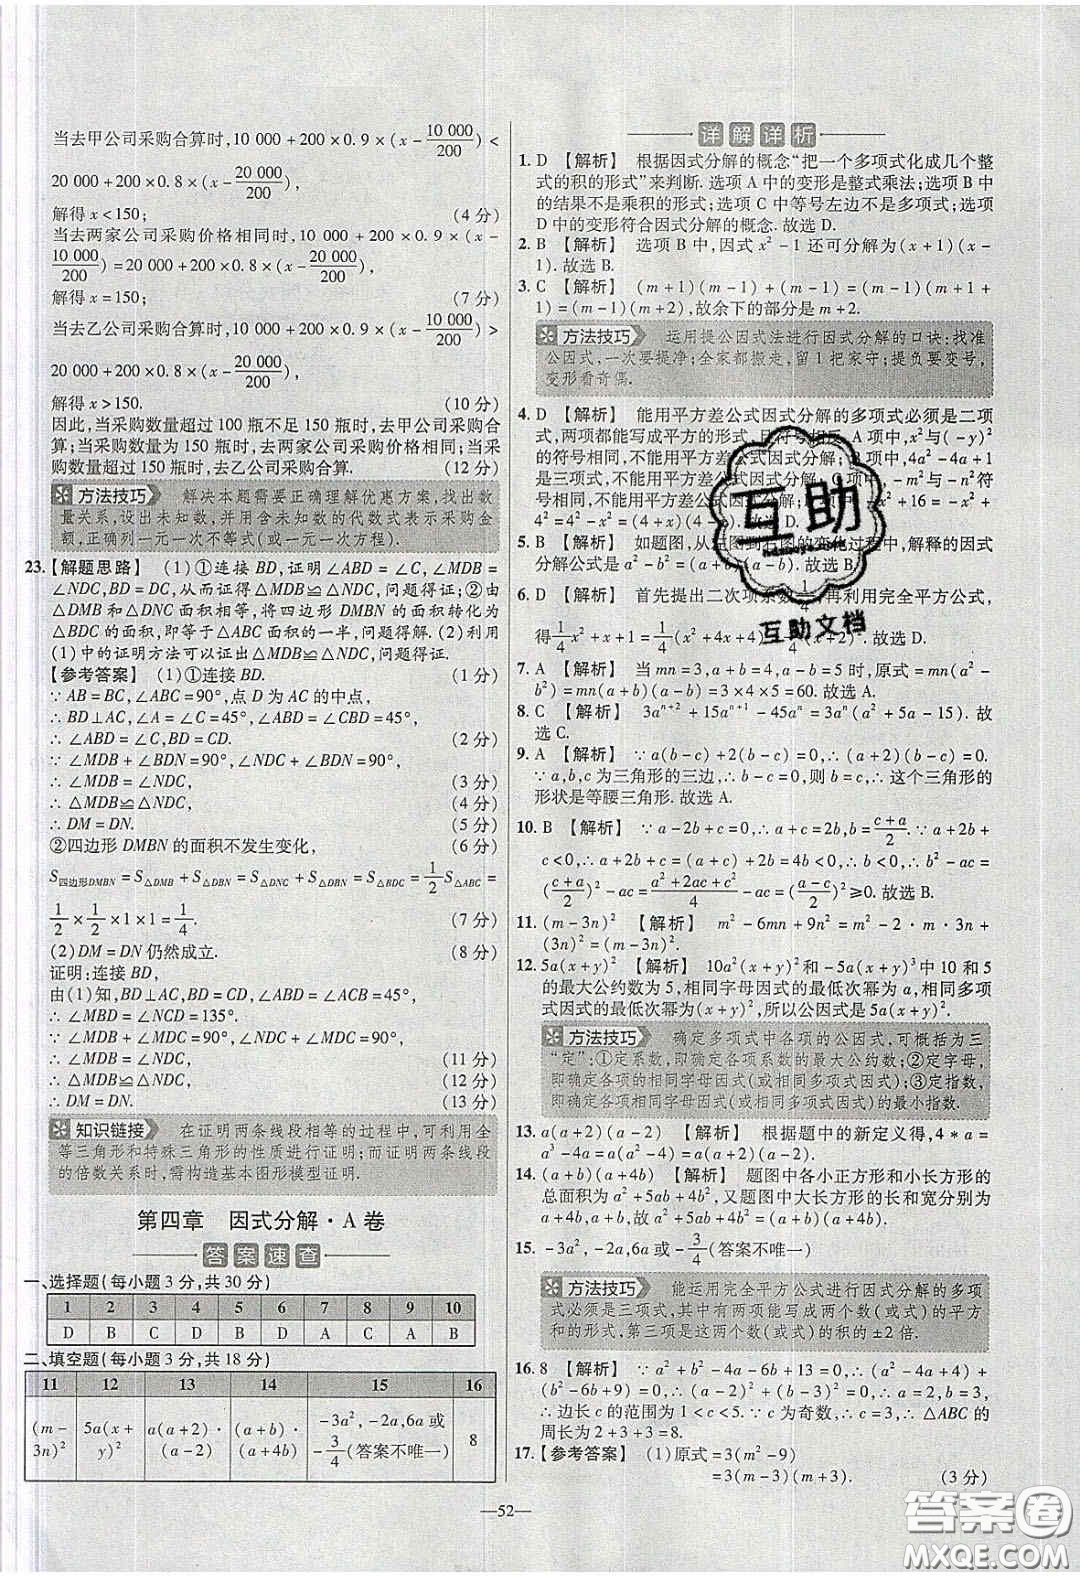 当去甲公司采购合算时,10 000 + 200 × 0.9 × (x - 10 000/200) <
20 000 + 200 × 0.8 × (x - 20 000/200),
解得 x < 150; (4 分)
当去两家公司采购价格相同时,10 000 + 200 × 0.9 × (x -
10 000/200) = 20 000 + 200 × 0.8 × (x - 20 000/200),
解得 x = 150; (7 分)
当去乙公司采购合算时,10 000 + 200 × 0.9 × (x - 10 000/200) >
20 000 + 200 × 0.8 × (x - 20 000/200),
解得 x > 150. (10 分)
因此,当采购数量超过 100 瓶不足 150 瓶时,去甲公司采购合
算;当采购数量为 150 瓶时,去两家公司采购价格相同;当采
购数量超过 150 瓶时,去乙公司采购合算. (12 分)
方法技巧 解决本题需要正确理解优惠方案,找出数
量关系,设出未知数,并用含未知数的代数式表示采购金
额,正确列一元一次不等式(或一元一次方程).
23.【解题思路】 (1)①连接 BD,证明∠ABD = ∠C,∠MDB =
∠NDC,BD = DC,从而证得△MDB≌△NDC,问题得证;②由
△DMB 和△DNC 面积相等,将四边形 DMBN 的面积转化为
△BDC 的面积,即等于△ABC 面积的一半,问题得解.(2)利用
(1)中的证明方法可以证出△MDB≌△NDC,问题得证.
【参考答案】 (1)①连接 BD. (1 分)
∵ AB = BC,∠ABC = 90°,点 D 为 AC 的中点,
∴ BD⊥AC,∠A = ∠C = 45°,∠ABD = ∠CBD = 45°,
∴ ∠ABD = ∠C,BD = CD. (2 分)
∵ ∠MDB + ∠BDN = 90°,∠NDC + ∠BDN = 90°,
∴ ∠MDB = ∠NDC, (3 分)
∴ △MDB≌△NDC, (4 分)
∴ DM = DN. (5 分)
②四边形 DMBN 的面积不发生变化, (6 分)
S四边形DMBN = S△DMB + S△DBN = S△DNC + S△DBN = S△BDC = 1/2 S△ABC =
1/2 × 1/2 × 1 × 1 = 1/4. (7 分)
(2) DM = DN 仍然成立. (8 分)
证明:连接 BD,
由(1)知,BD⊥AC,BD = CD,∠ABD = ∠ACB = 45°,
∴ ∠MBD = ∠NCD = 135°.
∵ ∠NDC + ∠MDC = 90°,∠MDB + ∠MDC = 90°,
∴ ∠MDB = ∠NDC, (11 分)
∴ △MDB≌△NDC, (12 分)
∴ DM = DN. (13 分)
知识链接 在证明两条线段相等的过程中,可利用全
等三角形和特殊三角形的性质进行证明;而证明两条线段
的倍数关系时,需构造基本图形模型证明.
第四章 因式分解·A 卷
答案速查
一、选择题(每小题 3 分,共 30 分)
1 2 3 4 5 6 7 8 9 10
D B C D B D A C A B
二、填空题(每小题 3 分,共 18 分)
11 12 13 14 15 16
(m - 3n)² 5a(x + y)² a(a + 2)·(a - 2) (a + b)·(a + 4b) -3a²,-2a,6a 或 -3/4(答案不唯一) 8
详解详析
1. D 【解析】 根据因式分解的概念“把一个多项式化成几个整
式的积的形式”来判断. 选项 A 中的变形是整式乘法;选项 B 中
的结果不是乘积的形式;选项 C 中等号左边不是多项式;选项
D 中的变形符合因式分解的概念. 故选 D.
2. B 【解析】 选项 B 中,因式 x² - 1 还可分解为(x + 1)(x -
1). 故选 B.
3. C 【解析】 (m + 1)(m - 1) + (m - 1) = (m - 1)(m + 1 +
1) = (m - 1)(m + 2),故余下的部分是 m + 2.
方法技巧 运用提公因式法进行因式分解的口诀:找准
公因式,一次要提净;全家都搬走,留 1 把家守;提负要变号,
变形看奇偶.
4. D 【解析】 能用平方差公式因式分解的多项式必须是二项
式,两项都能写成平方的形式,且符号相反. A 项中,x²与(-y)²
的符号相同,不能用平方差公式因式分解;B 项中,4a² - 4a + 1
是三项,不能用平方差公式因式分解;C 项中,-m²与-n²符
号相同,不能用平方差公式因式分解;D 项中,-x² + 16 = -x² +
4² = 4² - x² = (4 + x)(4 - x). 故选 D.
5. B 【解析】 如题图,从左图到右图的变化过程中,解释的因式
分解公式是 a² - b² = (a + b)(a - b). 故选 B.
6. D 【解析】 首先提出二次项系数1/4,再利用完全平方公式,
得1/4x² + x + 1 = 1/4(x² + 4x + 4) = 1/4(x + 2)². 故选 D.
7. A 【解析】 当 mn = 3,a + b = 4,a - b = 5 时,原式 = mn(a² -
b²) = mn(a + b)(a - b) = 3 × 4 × 5 = 60. 故选 A.
8. C 【解析】 3aⁿ⁺² + 15aⁿ⁺¹ - 45aⁿ = 3aⁿ(a² + 5a - 15). 故
选 C.
9. A 【解析】 ∵ a(b - c) + 2(b - c) = 0,∴ (a + 2)(b - c) = 0.
∵ a,b,c 为三角形的三边,∴ b - c = 0,则 b = c,∴ 这个三角形的
形状是等腰三角形. 故选 A.
10. B 【解析】 ∵ a - 2b + c = 0,∴ a + c = 2b,b = (c + a)/2. ∵ a + 2b +
c < 0,∴ a + 2b + c = (a + c) + 2b = 4b < 0,∴ b < 0,∴ b² - ac =
((c + a)/2)² - ac = (a² + 2ac + c²)/4 - ac = ((a - c)/2)² ≥ 0. 故选 B.
11. (m - 3n)² 【解析】 m² - 6mn + 9n² = m² - 2·m·3n +
(3n)² = (m - 3n)².
12. 5a(x + y)² 【解析】 10a²(x + y)²和 -5a(x + y)³中 10 和 5
的最大公约数为 5,相同字母因式的最低次幂为 a,相同多项
式因式的最低次幂为(x + y)²,所以公因式是 5a(x + y)².
方法技巧 确定多项式中各项的公因式,可概括为三
“定”:①定系数,即确定各项系数的最大公约数;②定字母,
即确定各项的相同字母因式(或相同多项式因式);③定指数,
即确定各项相同字母因式(或相同多项式因式)的最小指数.
13. a(a + 2)(a - 2) 【解析】 根据题中的新定义得,4 * a =
a³ - 4a = a(a² - 4) = a(a + 2)(a - 2).
14. (a + b)(a + 4b) 【解析】 题图中各小正方形和小长方形的
总面积为 a² + 5ab + 4b²,又题图中大长方形的长和宽分别为
a + 4b,a + b,∴ a² + 5ab + 4b² = (a + b)(a + 4b).
15. -3a²,-2a,6a 或 -3/4(答案不唯一)
方法技巧 能运用完全平方公式进行因式分解的多项
式必须是三项式,其中有两项能写成两个数(或式)的平方
和的形式,第三项是这两个数(或式)的积的 ±2 倍.
16. 8 【解析】 ∵ a² + b² - 4a - 6b + 13 = 0,∴ (a² - 4a + 4) +
(b² - 6b + 9) = 0,∴ (a - 2)² + (b - 3)² = 0,∴ a = 2,b = 3,
∴ 边长 c 的范围为 1 < c < 5. ∵ c 为奇数,∴ c = 3,∴ △ABC 的
周长为 2 + 3 + 3 = 8.
17.【参考答案】 (1)原式 = 3(m² - 9)
= 3(m - 3)(m + 3). (3 分)
—52—
互助
互助文档
答案圈
MXQE.COM